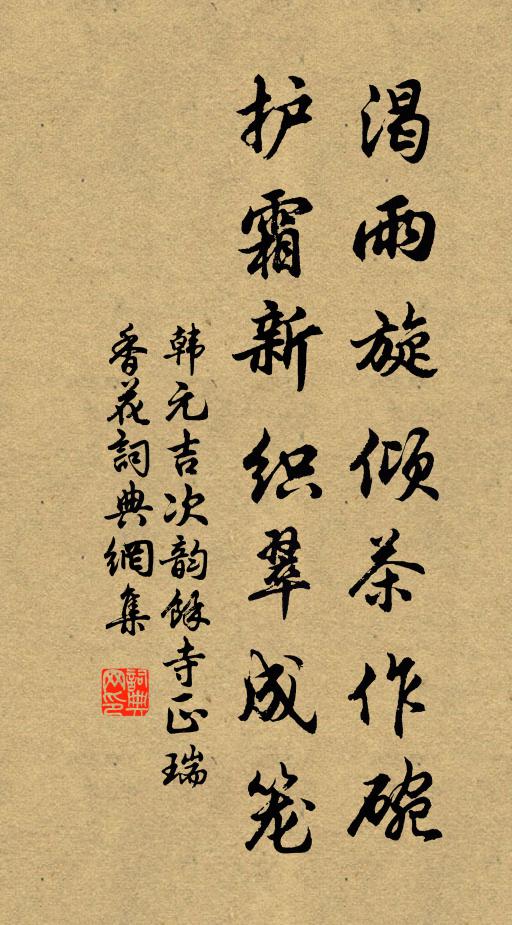 渴雨旋倾茶作碗
护霜新织翠成笼
韩元吉次韵馀寺正瑞
香花詞典網集
詞典网印